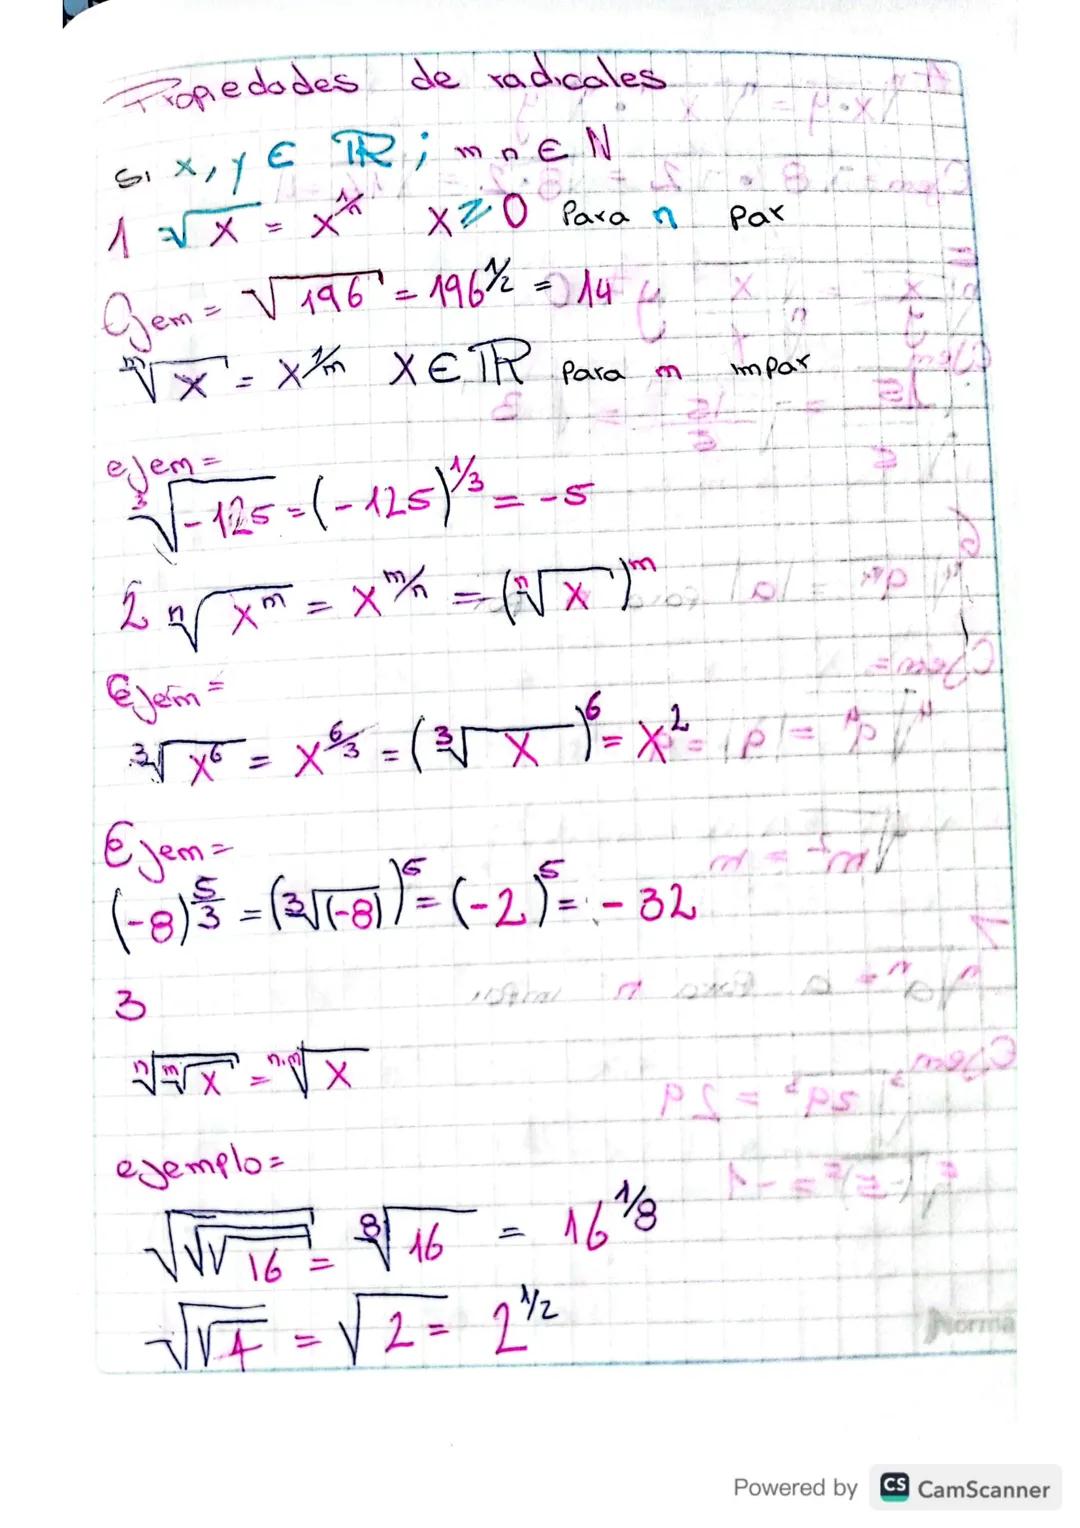 Propiedades de radicales
Si x, y ∈ ℝ ; m n ∈ N
1 ⁿ√x = x^1/n x ≥ 0 Para n par
Ejem = √196 = 196^1/2 = 14
ᵐ√x = x^1/m X ∈ ℝ Para m impar
ejem =
³√-125 = (-125)^1/3 = -5
2 ⁿ√x^m = x^m/n = (ⁿ√x)^m
Ejem =
³√x^6 = x^6/3 = (³√x)^6 = x^2
Ejem =
(-8)^5/3 = (³√(-8))^5 = (-2)^5 = -32
3
ⁿ√ᵐ√x = ⁿ·ᵐ√x
ejemplo =
√√√16 = ⁸√16 = 16^1/8
√√4 = √2 = 2^1/2
Norma
Powered by CS CamScanner